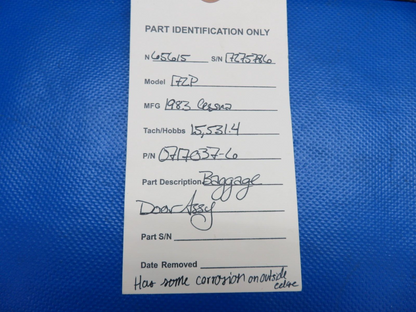 PART IDENTIFICATION ONLY
N 65615 S/N 17275786
Model 172P
MFG 1983 Cessna
Tach/Hobbs 15,531.4
P/N 0717037-6
Part Description Baggage
Door Assy
Part S/N
Date Removed
Has some corrosion on outside
edge